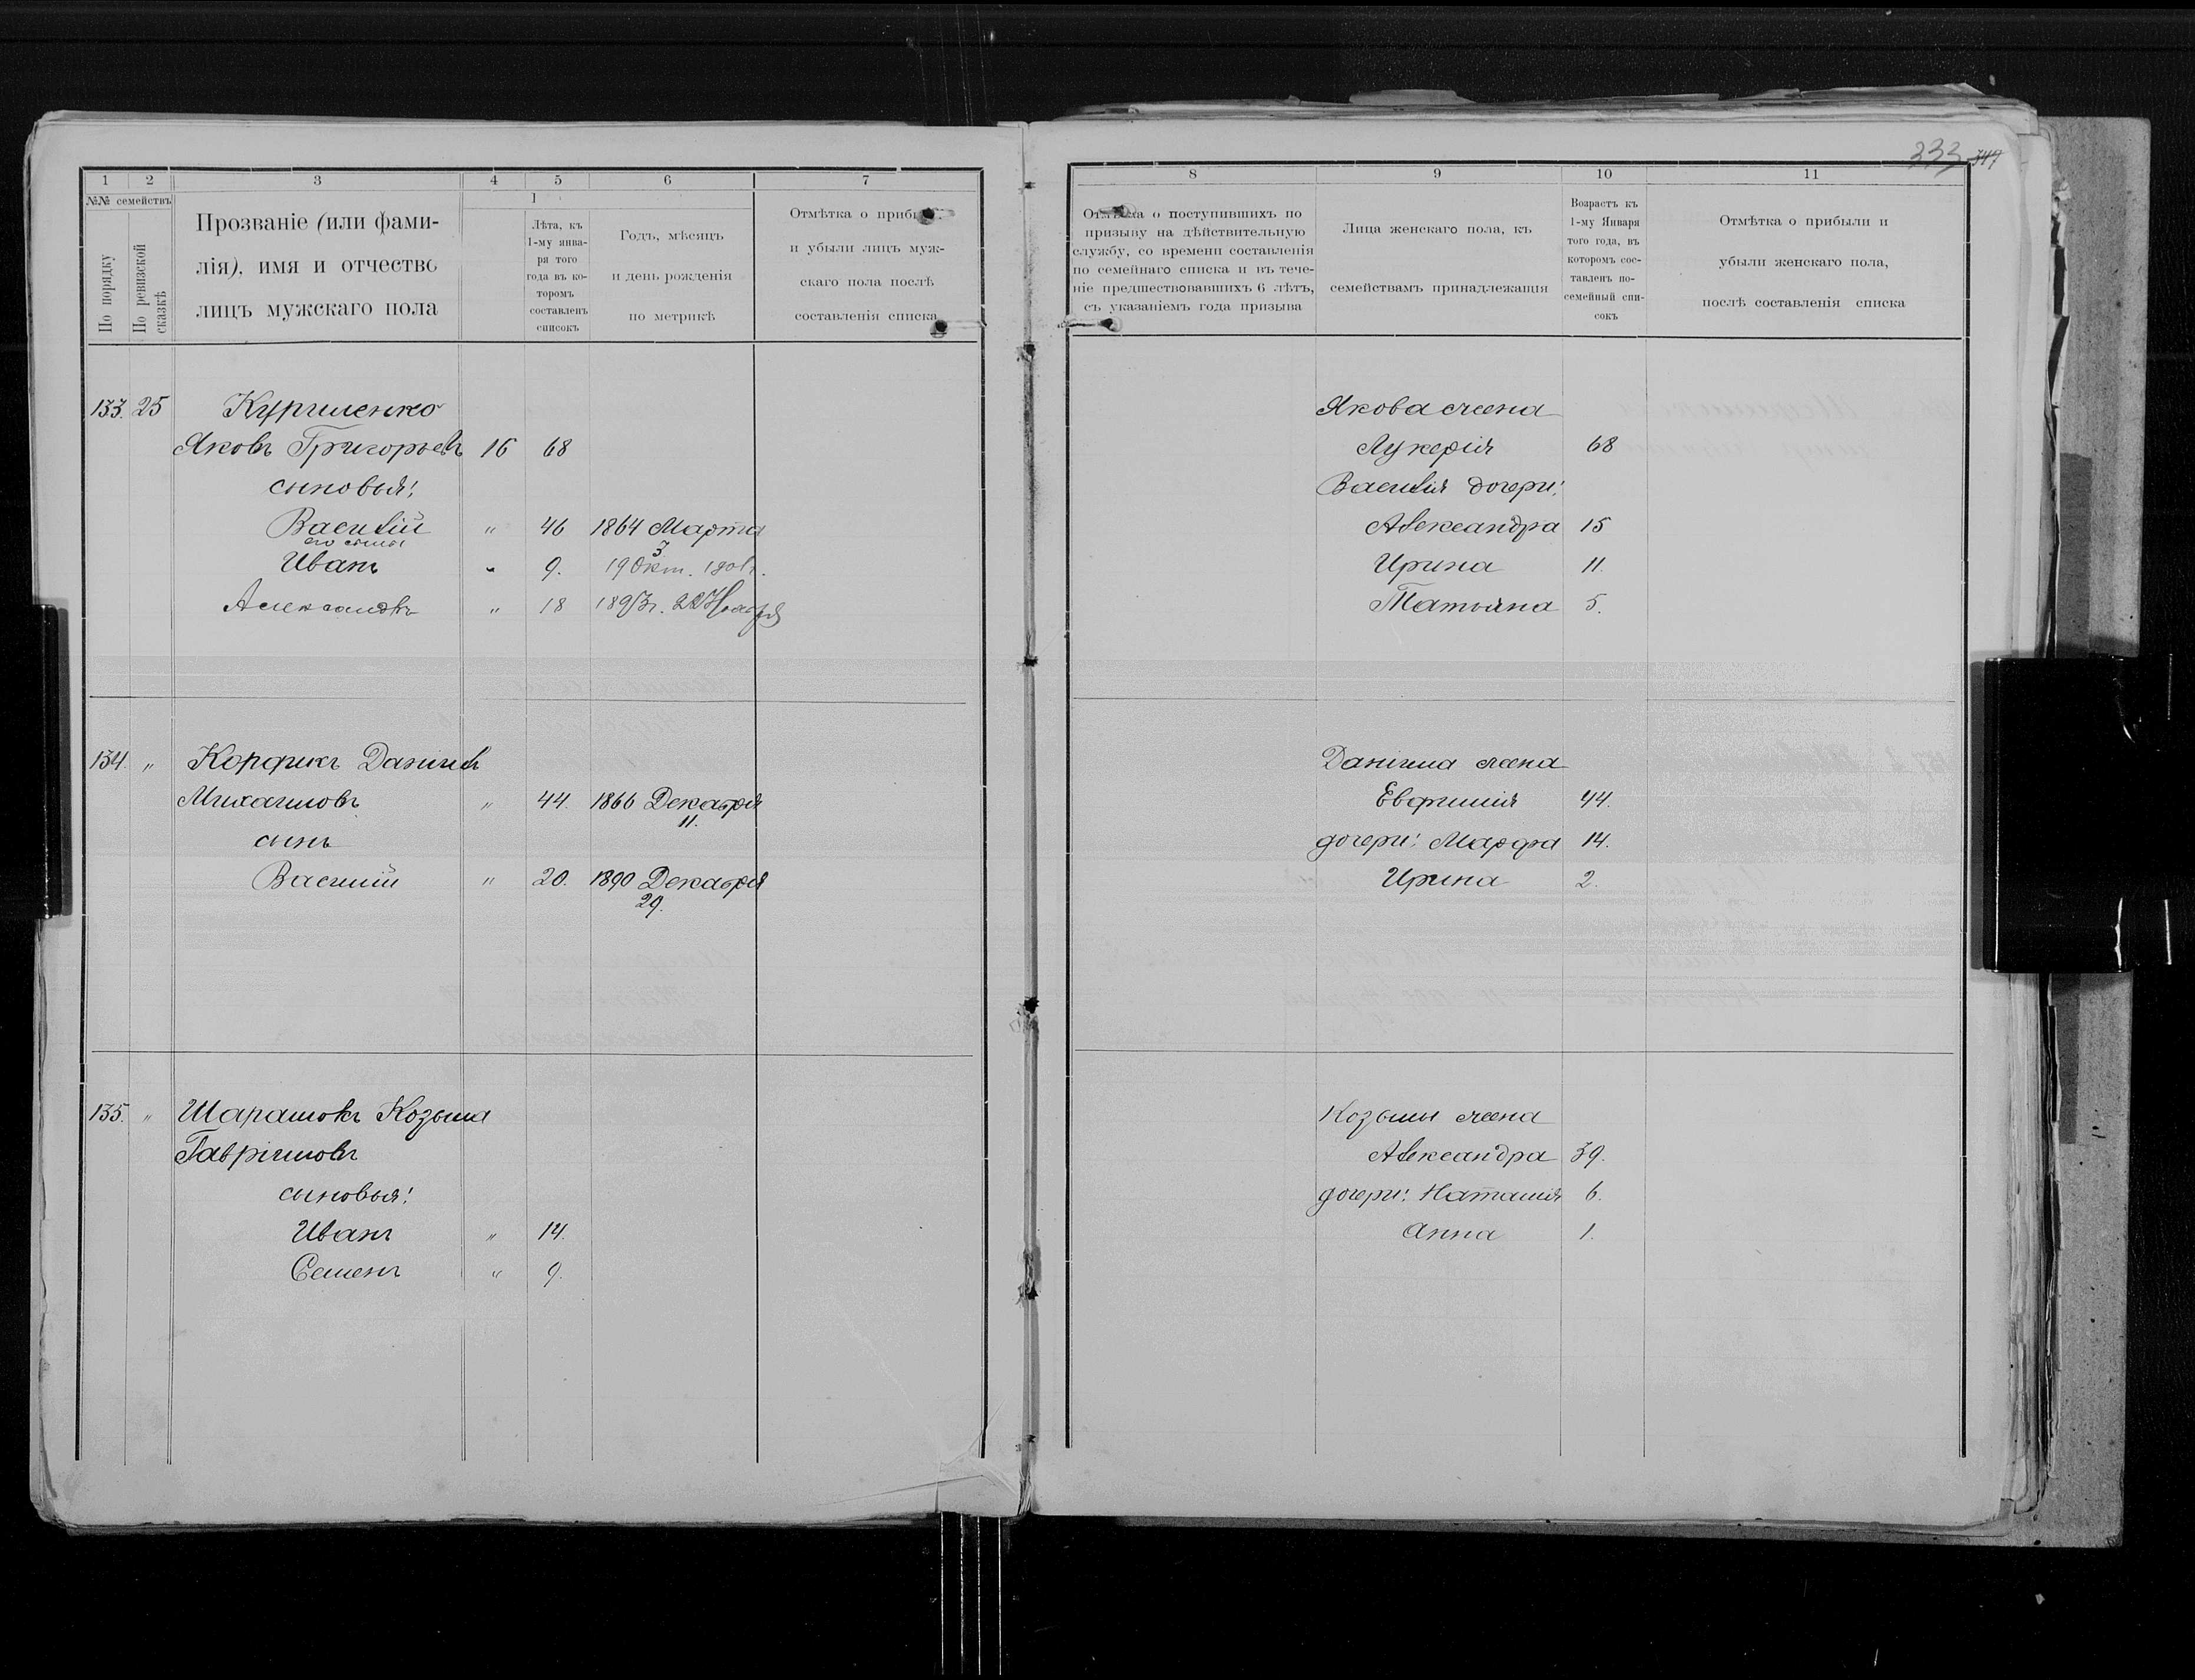 333 347
1 2 3 4 5 6 7
№№ семействъ
По порядку
По ревизской сказкѣ
Прозваніе (или фами-
лія), имя и отчество
лицъ мужскаго пола
Лѣта, къ
1-му янва-
ря того
года въ ко-
торомъ
составленъ
списокъ
Годъ, мѣсяцъ
и день рожденія
по метрикѣ
Отмѣтка о прибыли
и убыли лицъ муж-
скаго пола послѣ
составленія списка
133. 25 Куриленко
Яковъ Григорьевъ 16 68
сыновья:
Василій " 46 1864 Марта
3
его сыны
Иванъ " 9. 19 Окт. 1901г.
Александръ " 18 1893г. 22 Ноября
134 " Корфикъ Даніилъ
Михаиловъ " 44. 1866 Декабря
11.
сынъ
Василій " 20. 1890 Декабря
29.
135. " Шарашовъ Козьма
Гавріиловъ
сыновья:
Иванъ " 14.
Семенъ " 9.
8 9 10 11
Отмѣтка о поступившихъ по
призыву на дѣйствительную
службу, со времени составленія
по семейнаго списка и въ тече-
ніе предшествовавшихъ 6 лѣтъ,
съ указаніемъ года призыва
Лица женскаго пола, къ
семействамъ принадлежащія
Возрастъ къ
1-му Января
того года, въ
которомъ сос-
тавленъ по-
семейный спи-
сокъ
Отмѣтка о прибыли и
убыли женскаго пола,
послѣ составленія списка
Якова жена
Лукерія 68
Василія дочери:
Александра 15
Ирина 11.
Татьяна 5.
Даніила жена
Евфимія 44.
дочери: Марфа 14.
Ирина 2.
Козьмы жена
Александра 39.
дочери: Наталія 6.
Анна 1.